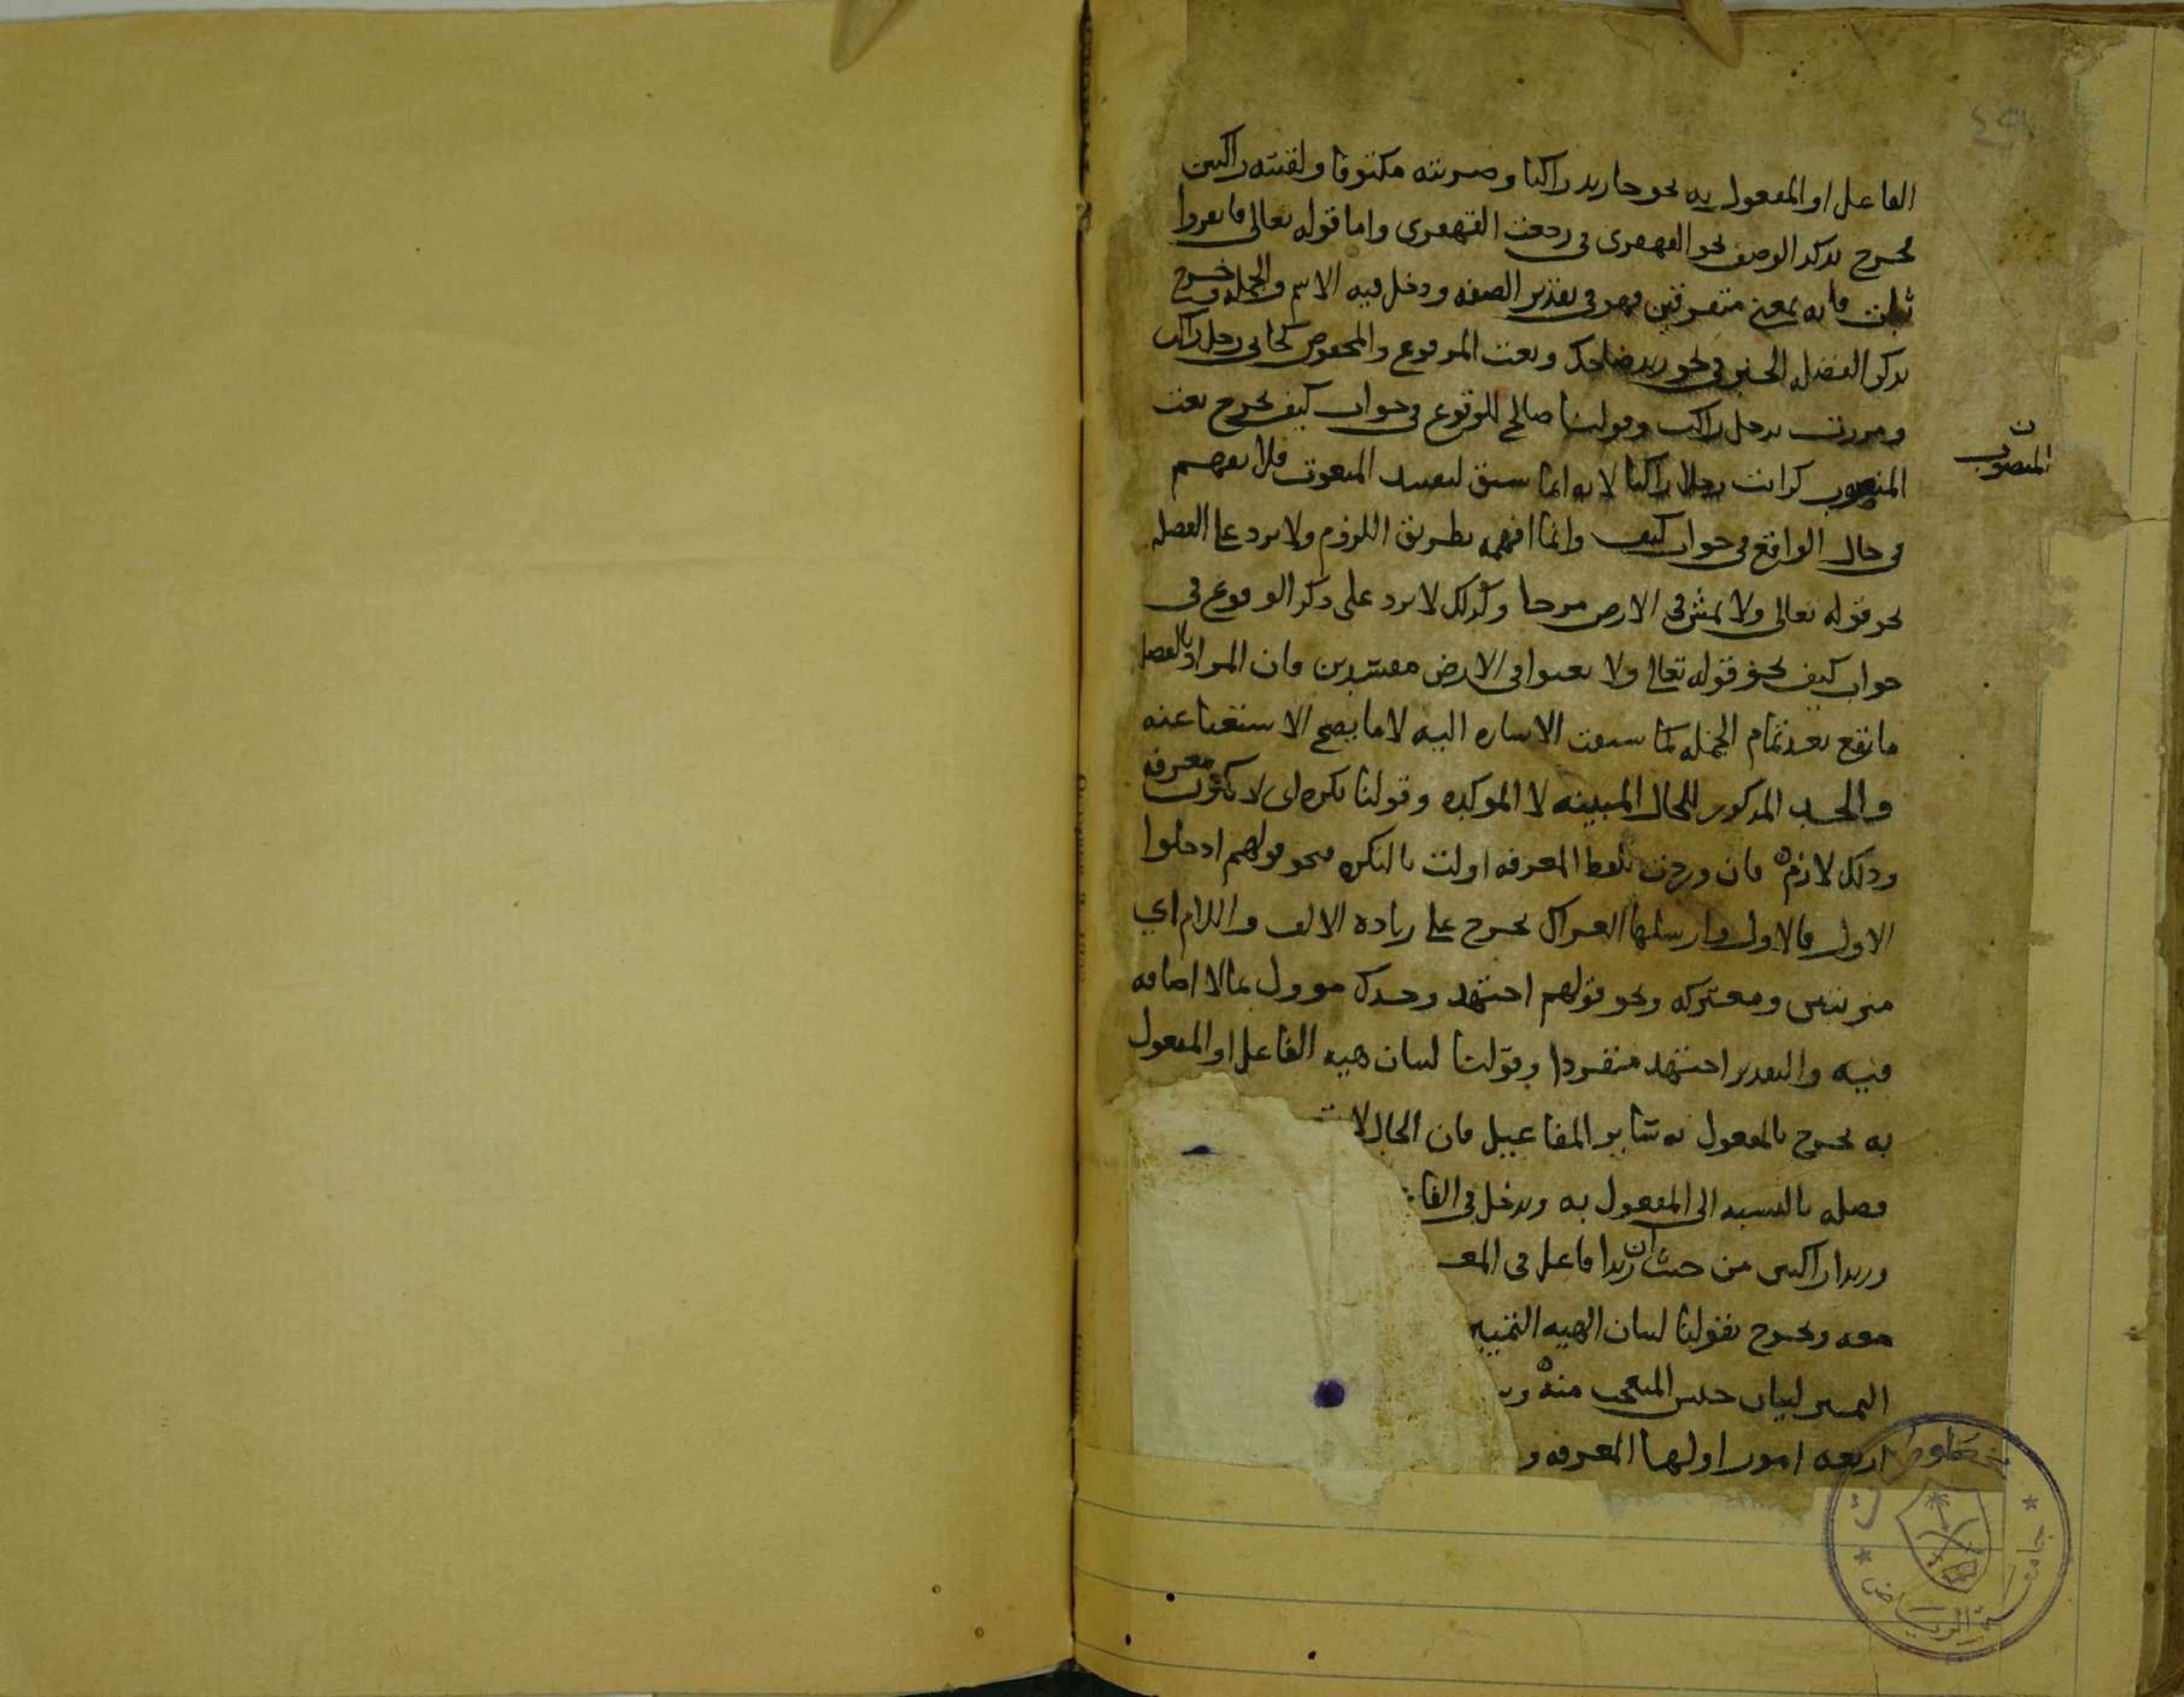 الفاعل او المفعول به نحو جا زيد راكبا وضربته مكتوفا ولقيته راكبين
فخرج بذكر الوصف نحو القهقرى في رجعت القهقرى واما قوله تعالى فانفروا
ثبات فانه بمعنى متفرقين فهو في تقدير الصفه ودخل فيه الاسم والجمله وخرج
بذكر الفضله الخبر في نحو زيد ضاحك ونعت المرفوع والمخفوض كجاني رجل راكب
ومررت برجل راكب وقولنا صالح للوقوع في جواب كيف يخرج نعت
المنصوب كرايت رجلا راكبا لانه انما سيق لتقييد المنعوت فلا يفهم
المنصوب
في حال الواقع في جواب كيف وانما افهمه بطريق اللزوم ولا يرد على الفضله
نحو قوله تعالى ولا تمش في الارض مرحا وكذلك لا يرد على ذكر الوقوع في
جواب كيف نحو قوله تعالى ولا تعثوا في الارض مفسدين فان المراد بالفضله
ما يقع بعد تمام الجمله كما سبقت الاشاره اليه لا ما يصح الاستغنا عنه
والحد المذكور للحال المبينه لا الموكده وقولنا نكره اي لا تكون معرفه
وذلك لازم فان وردت بلفظ المعرفه اولت بالنكره نحو قولهم ادخلوا
الاول فالاول وارسلها العراك يخرج على زياده الالف واللام اي
مترتبين ومعتركه ونحو قولهم اجتهد وحدك موول بما لا اضافه
فيه والتقدير اجتهد منفردا وقولنا لبيان هيه الفاعل او المفعول
به يخرج بالمفعول به سائر المفاعيل فان الحال لا
فضله بالنسبه الى المفعول به ويدخل في الفا
وزيدا راكبين من حيث ان زيدا فاعل في المعـ
معه ويخرج بقولنا لبيان الهيه التمييز
التمييز لبيان جنس المتعجب منه
اربعه امور اولها المعرفه و
مخطوطات
جامعة الرياض